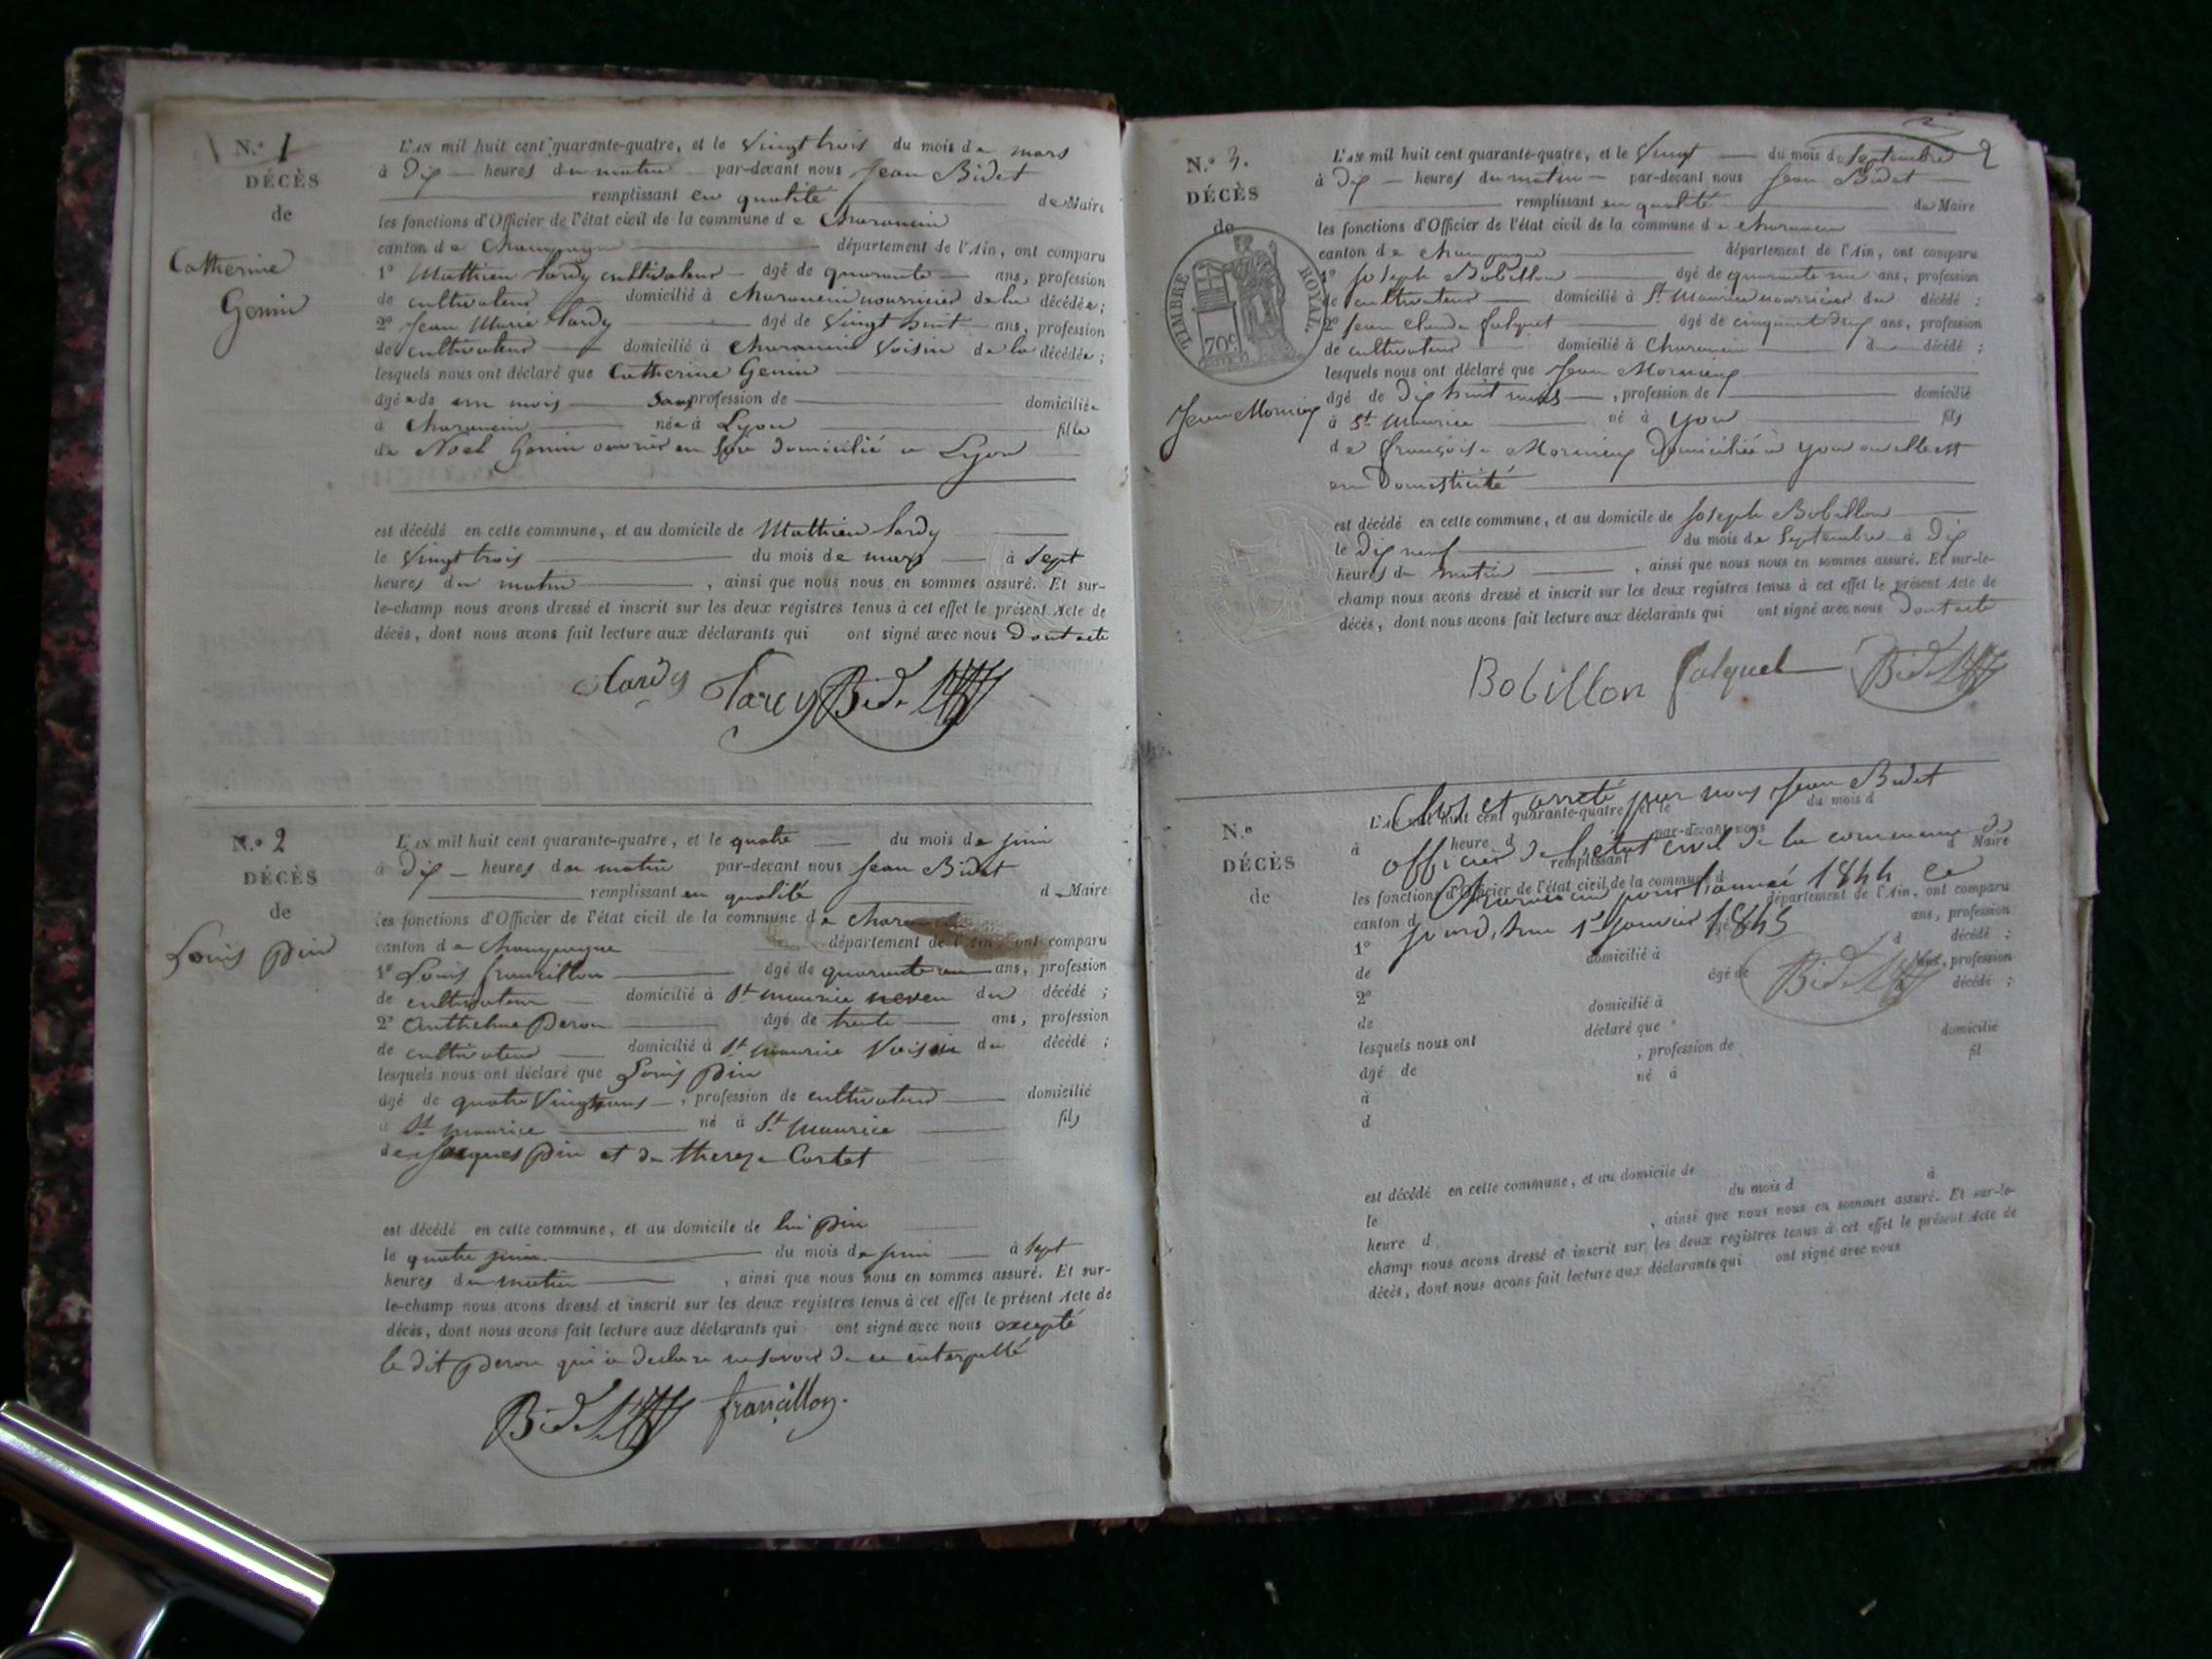 N.° 1
DÉCÈS
de
Catherine
Genin
L'AN mil huit cent quarante-quatre, et le vingt trois du mois de mars
à dix heures du matin par-devant nous Jean Bidet
remplissant en qualité de Maire
les fonctions d'Officier de l'état civil de la commune de Charancin
canton de Champagne département de l'Ain, ont comparu
1° Mathieu Tardy cultivateur âgé de quarante ans, profession
de cultivateur domicilié à Charancin nourricier de la décédée ;
2° Jean Marie Tardy âgé de vingt huit ans, profession
de cultivateur domicilié à Charancin voisin de la décédée ;
lesquels nous ont déclaré que Catherine Genin
âgée de un mois sans profession de domiciliée
à Charancin née à Lyon fille
de Noel Genin ouvrier en soie domicilié a Lyon
est décédé en cette commune, et au domicile de Mathieu Tardy
le vingt trois du mois de mars à sept
heures du matin , ainsi que nous nous en sommes assuré. Et sur-
le-champ nous avons dressé et inscrit sur les deux registres tenus à cet effet le présent Acte de
décès, dont nous avons fait lecture aux déclarants qui ont signé avec nous dont acte
Tardy Tardy Bidet
N.° 2
DÉCÈS
de
Louis pin
L'AN mil huit cent quarante-quatre, et le quatre du mois de juin
à dix heures du matin par-devant nous Jean Bidet
remplissant en qualité d Maire
les fonctions d'Officier de l'état civil de la commune de
canton de Champagne département de l'Ain, ont comparu
1° Louis francillon âgé de quarante un ans, profession
de cultivateur domicilié à St maurice neveu du décédé ;
2° Anthelme peron âgé de trente ans, profession
de cultivateur domicilié à St maurice voisin du décédé ;
lesquels nous ont déclaré que Louis pin
âgé de quatre vingt ans , profession de cultivateur domicilié
à St maurice né à St maurice fils
de Jacques pin et de thereze Cortet
est décédé en cette commune, et au domicile de lui pin
le quatre juin du mois de juin à sept
heures du matin , ainsi que nous nous en sommes assuré. Et sur-
le-champ nous avons dressé et inscrit sur les deux registres tenus à cet effet le présent Acte de
décès, dont nous avons fait lecture aux déclarants qui ont signé avec nous excepté
le dit peron qui a declare ne savoir de ce interpellé
Bidet francillon.
2
N.° 3.
DÉCÈS
de
TIMBRE ROYAL.
70c
Jean Mornieux
L'AN mil huit cent quarante-quatre, et le vingt du mois de Septembre
à dix heures du matin par-devant nous Jean Bidet
remplissant en qualité de Maire
les fonctions d'Officier de l'état civil de la commune de Charancin
canton de Champagne département de l'Ain, ont comparu
1° Joseph Bobillon âgé de quarante un ans, profession
de cultivateur domicilié à St Maurice nourricier du décédé ;
2° Jean Claude falquet âgé de cinquante dix ans, profession
de cultivateur domicilié à Charancin d décédé ;
lesquels nous ont déclaré que Jean Mornieux
âgé de dix huit mois , profession de domicilié
à St Maurice né à yon fils
de françoise Mornieux domiciliée a yon ou elle est
en domesticité
est décédé en cette commune, et au domicile de Joseph Bobillon
le dix neuf du mois de Septembre à dix
heures du matin , ainsi que nous nous en sommes assuré. Et sur-le-
champ nous avons dressé et inscrit sur les deux registres tenus à cet effet le présent Acte de
décès, dont nous avons fait lecture aux déclarants qui ont signé avec nous dont acte
Bobillon falquet Bidet
Clos et arreté par nous Jean Bidet
officier de l'état civil de la commune de
Charancin pour l'année 1844 ce
jourd'hui 1er Janvier 1845
Bidet
N.°
DÉCÈS
de
L'AN mil huit cent quarante-quatre, et le du mois d
à heure d par-devant nous
remplissant d Maire
les fonctions d'Officier de l'état civil de la commune d
canton d département de l'Ain, ont comparu
1° ans, profession
de domicilié à d décédé ;
2° âgé de ans, profession
de domicilié à décédé ;
lesquels nous ont déclaré que
âgé de , profession de domicilié
à né à fil
d
est décédé en cette commune, et au domicile de
le du mois d à
heure d , ainsi que nous nous en sommes assuré. Et sur-le-
champ nous avons dressé et inscrit sur les deux registres tenus à cet effet le présent Acte de
décès, dont nous avons fait lecture aux déclarants qui ont signé avec nous